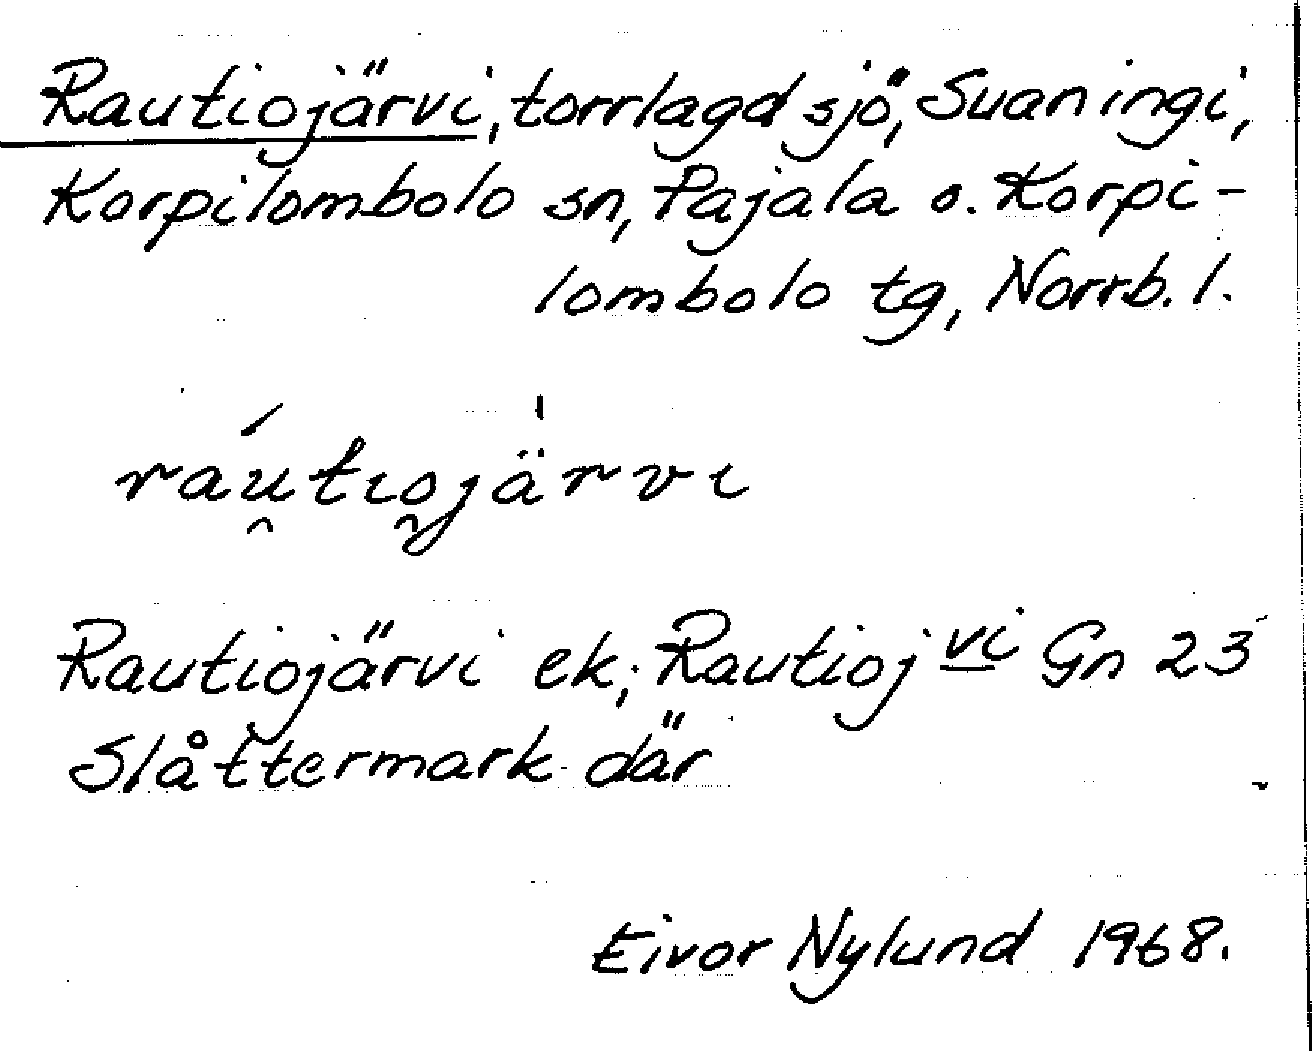 Rautiojärvi, torrlagd sjö, Suaningi,
Korpilombolo sn, Pajala o. Korpi-
lombolo tg, Norrb. l.
ráu̯tıo̯jä̍rvı
Rautiojärvi ek; Rautioj vi Gn 23
Slåttermark där
Eivor Nylund 1968.